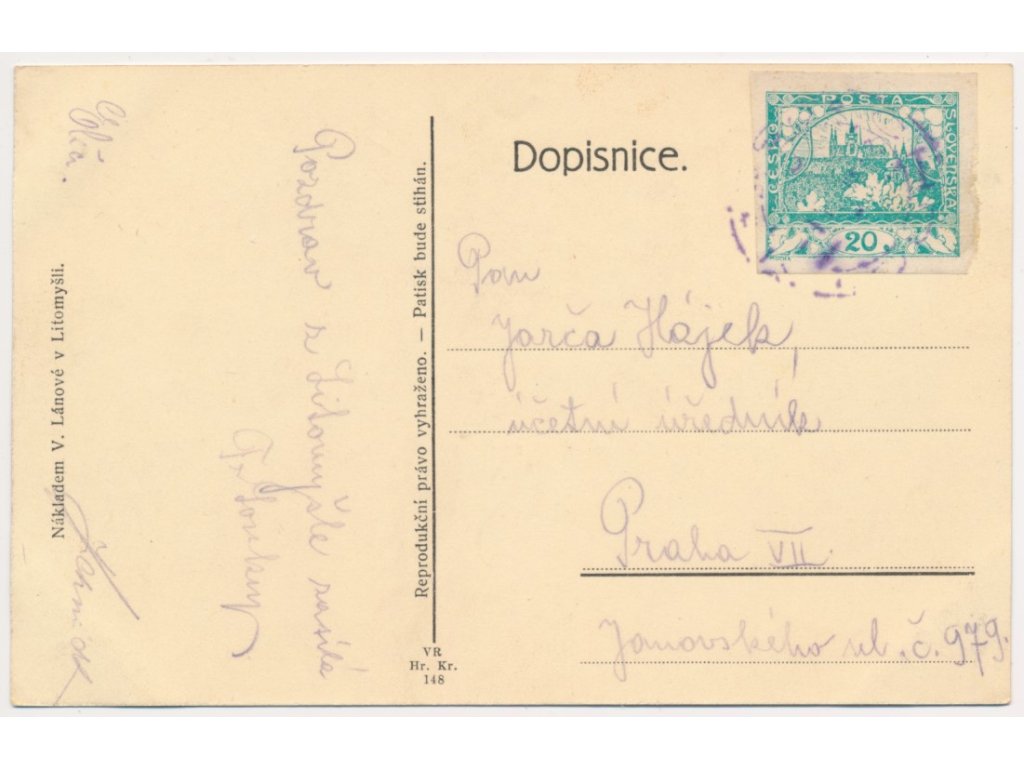 Dopisnice.
POSTA
ČESKO
SLOVENSKÁ
20
MUCHA
Pan
Jarča Hájek,
účetní úředník
Praha VII.
Janovského ul. č. 979.
Pozdrav z Litomyšle zasílá
Fr. Soukup
Nákladem V. Lánové v Litomyšli.
Reprodukční právo vyhraženo. — Patisk bude stihán.
VR
Hr. Kr.
148